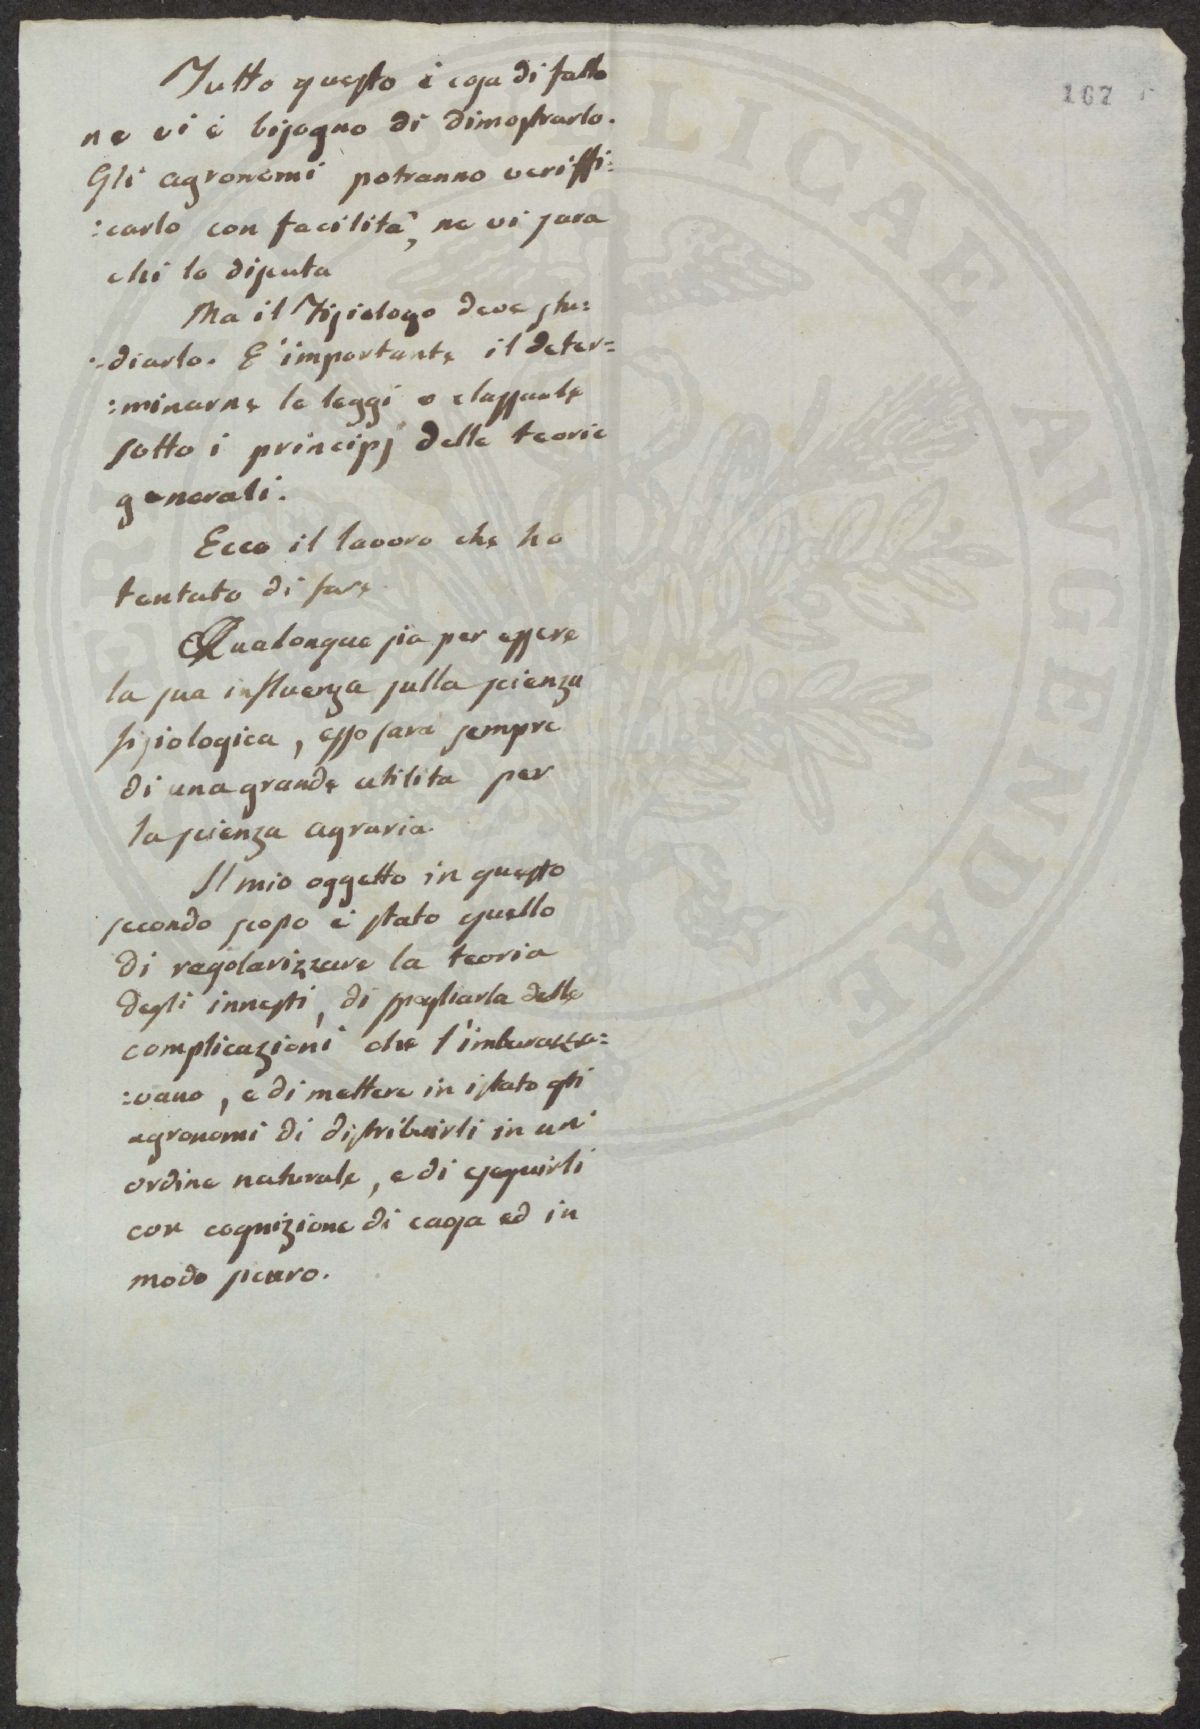 167
Tutto questo è cosa di fatto
ne vi è bisogno di dimostrarlo.
Gli agronomi potranno veriffi:
:carlo con facilità, ne vi sara
chi lo disputa
Ma il Fisiologo deve stu:
:diarlo. E' importante il deter=
:minarne le leggi e classarle
sotto i principj delle teorie
generali.
Ecco il lavoro che ho
tentato di fare
Qualonque sia per essere
la sua influenza sulla scienza
fisiologica, esso sarà sempre
di una grande utilita per
la scienza agraria.
Il mio oggetto in questo
secondo scopo è stato quello
di regolarizzare la teoria
degli innesti, di spogliarla delle
complicazioni che l'imbarazza:
:vano, e di mettere in istato gli
agronomi di distribuirli in un'
ordine naturale, e di eseguirli
con cognizione di causa ed in
modo sicuro.
PUBLICAE AVGENDAE